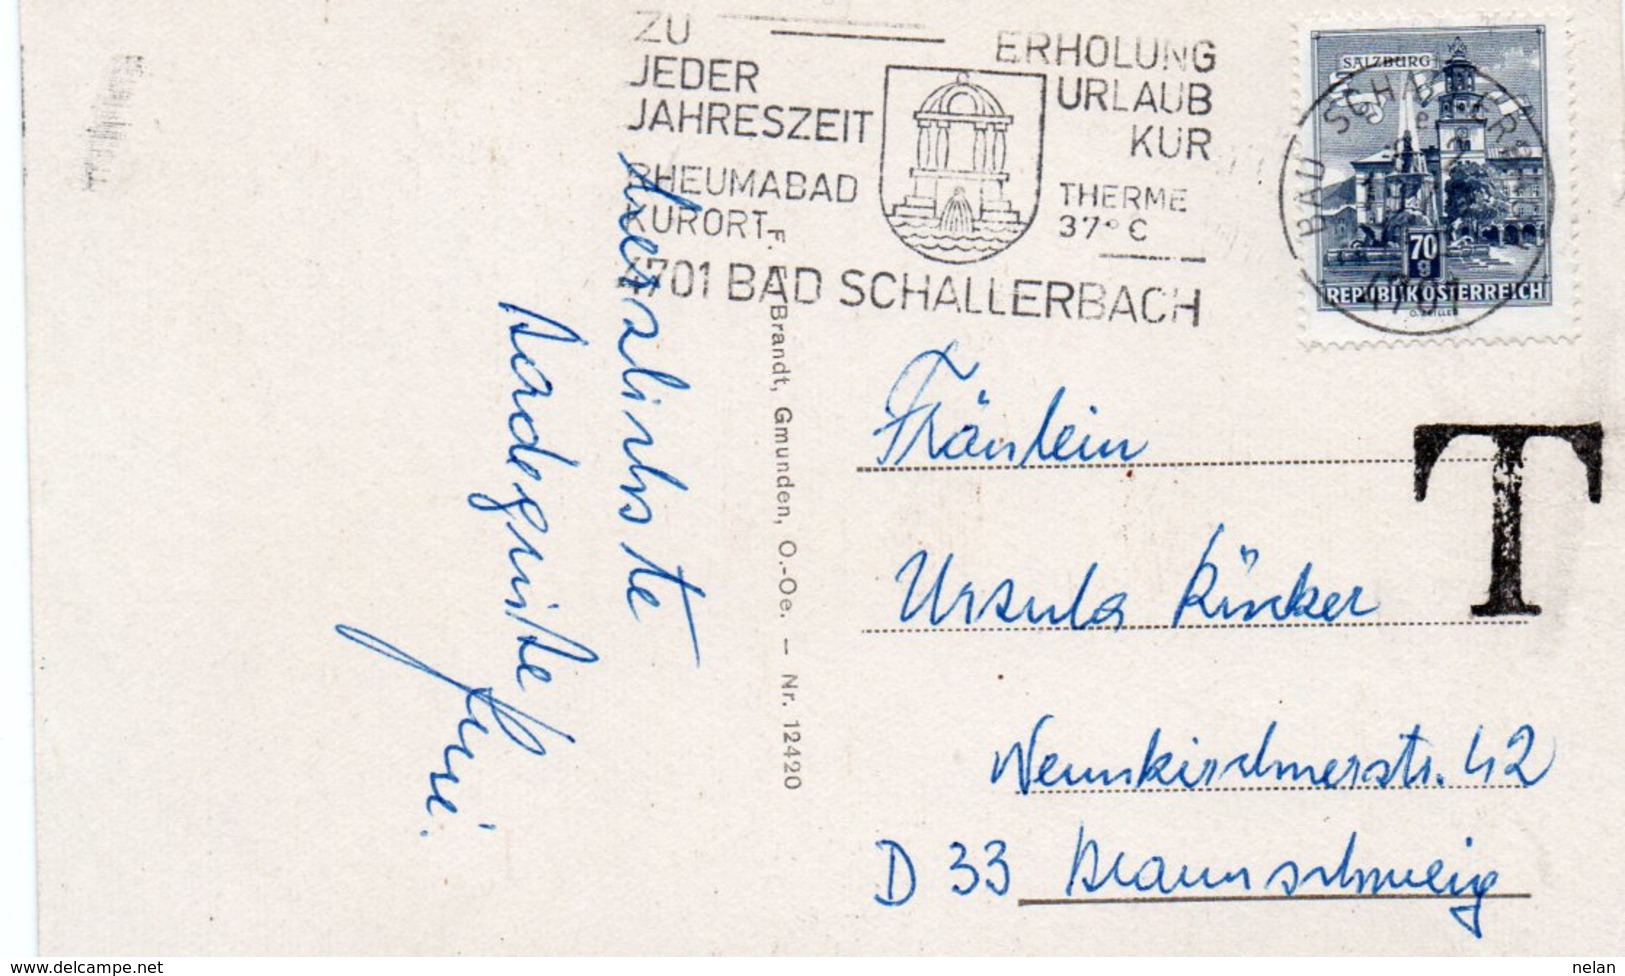 ZU
JEDER
JAHRESZEIT
RHEUMABAD
KURORT
ERHOLUNG
URLAUB
KUR
THERME
37° C
4701 BAD SCHALLERBACH
SALZBURG
70
g
REPUBLIK ÖSTERREICH
BAD SCHALLERBACH
4701
T
Herzlichste
Brandt, Gmunden, O.-Oe. – Nr. 12420
Fräulein
Ursula
42
D 33 Braunschweig
www.delcampe.net
nelan